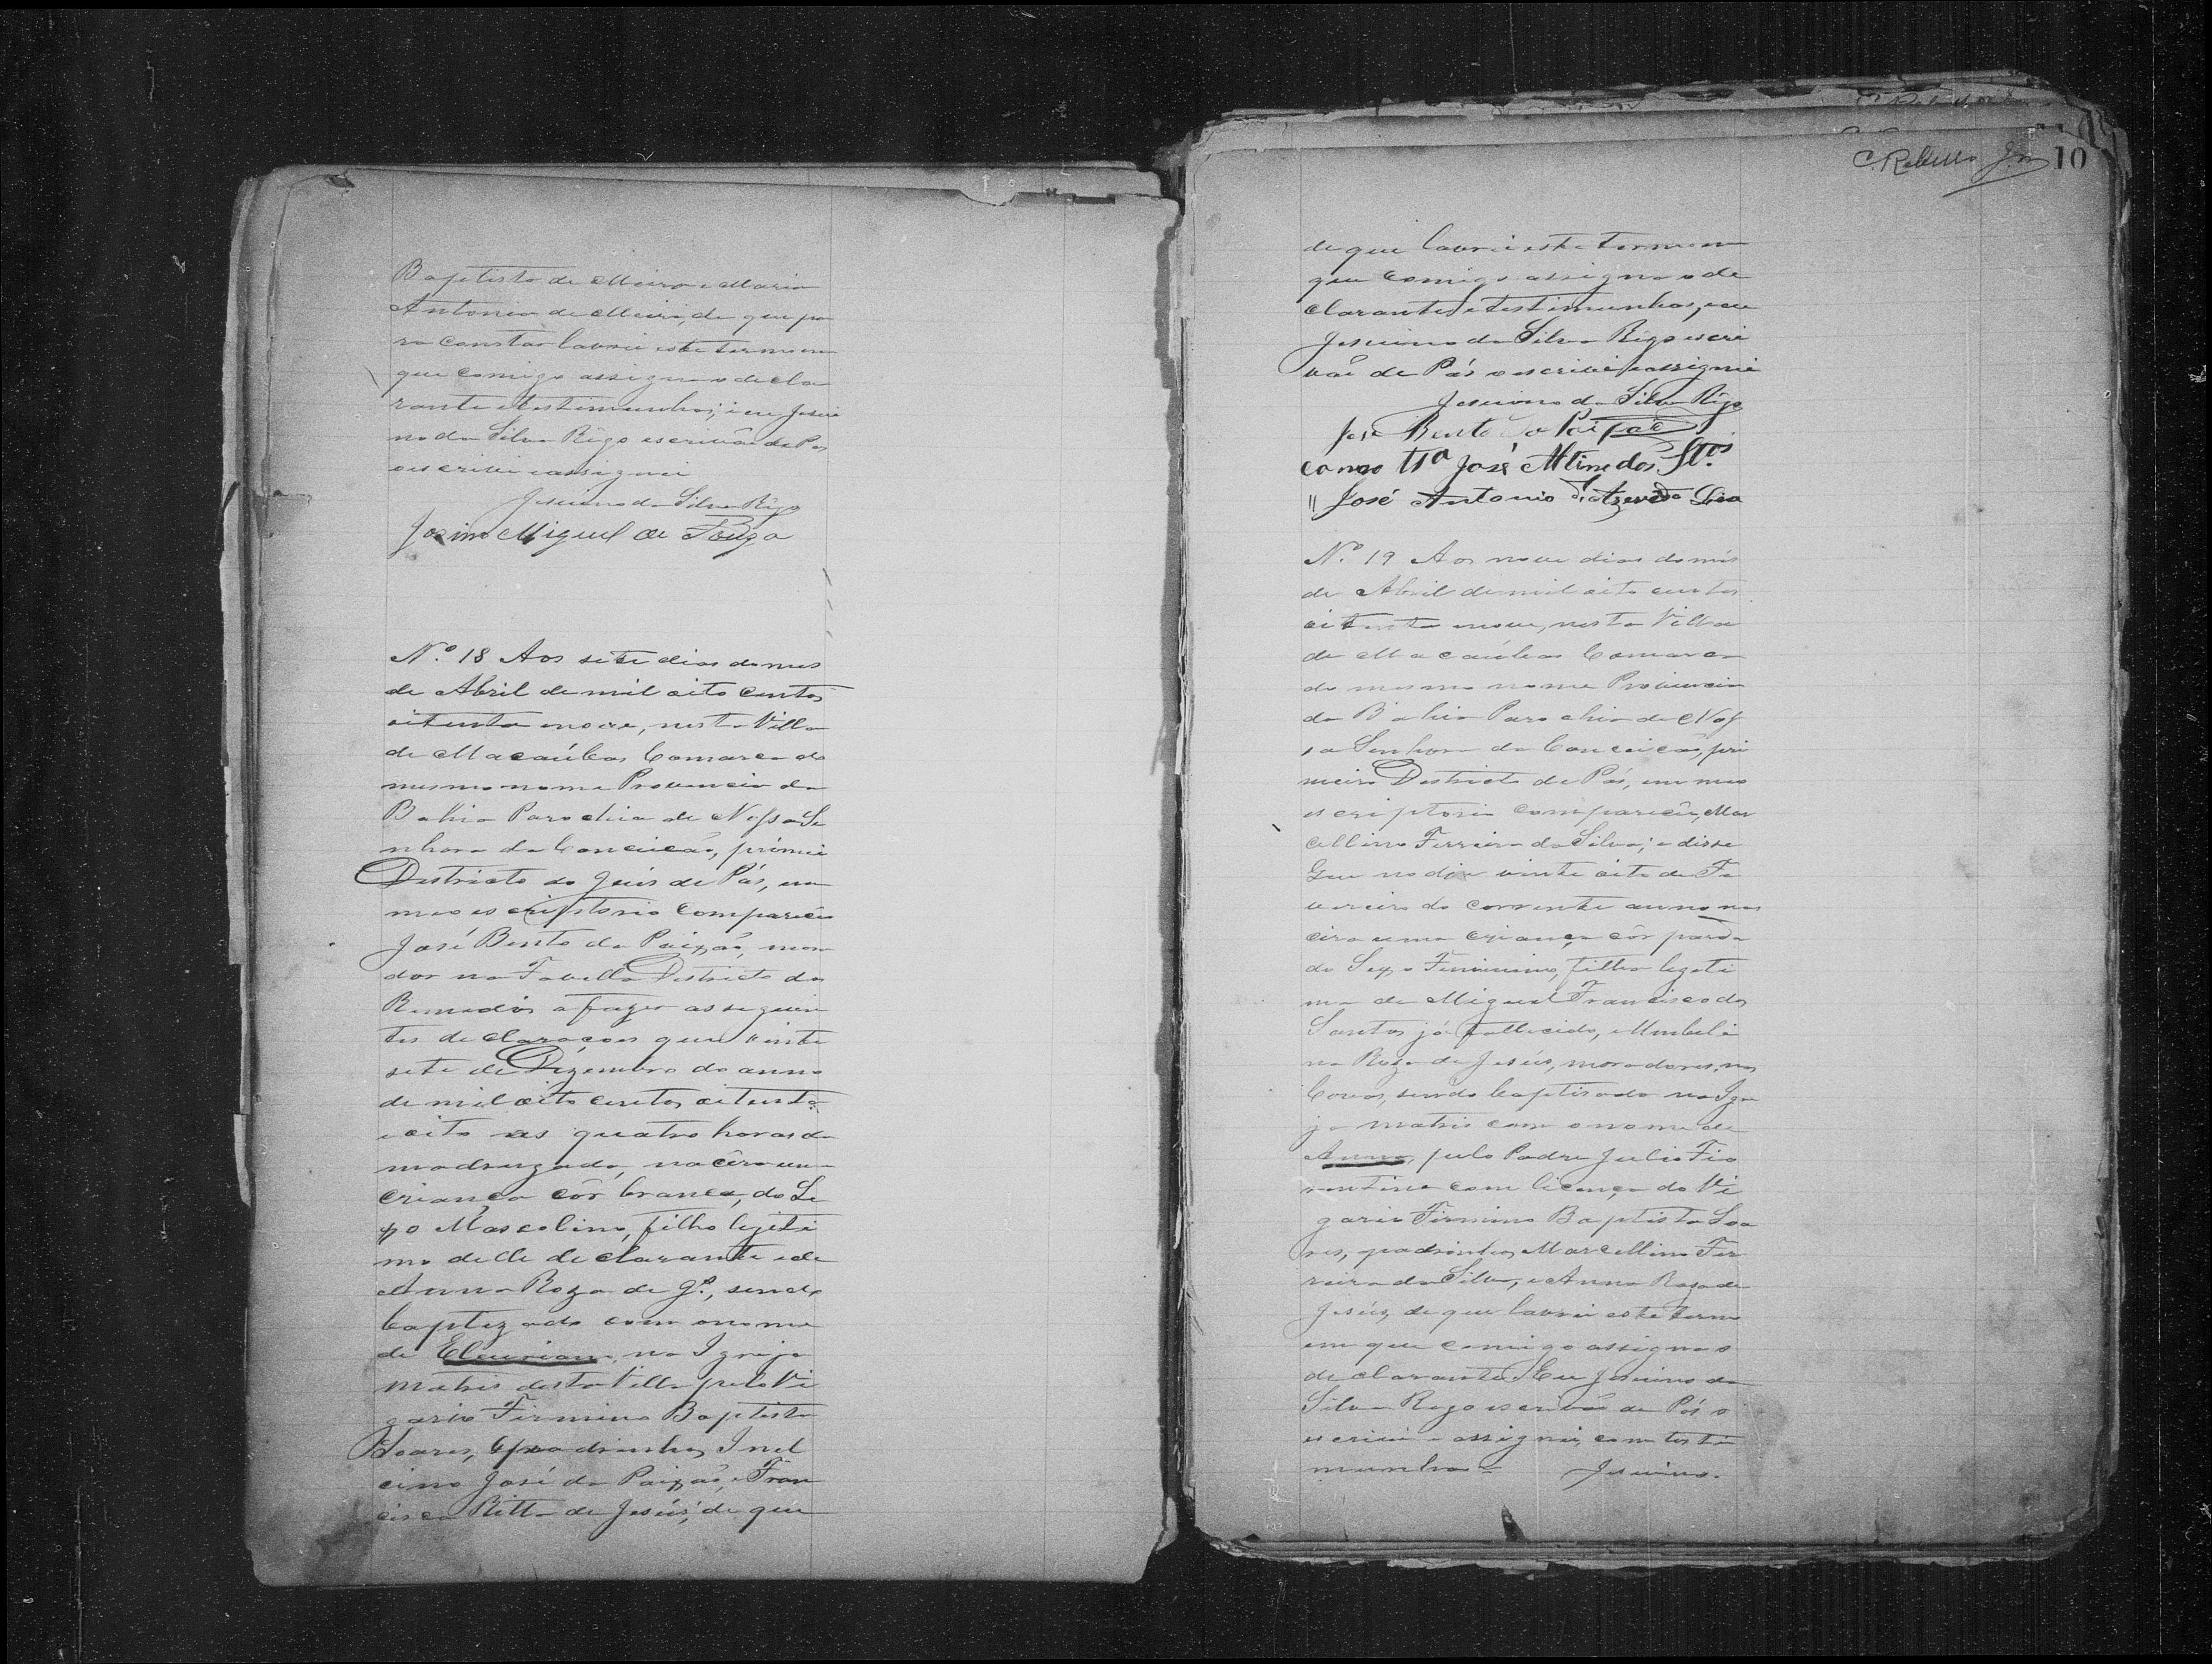 Baptista de Meira e Maria
Antonia de Meira, de que pa
ra constar lavrei este termo em
que comigo assigna o decla
rante e testimunhas; e eu Jesui
no da Silva Rêgo escrivão de Pas
o escrivi e assignei
Jesuino da Silva Rêgo
Miguel de Souza
Nº 18 Aos sete dias do mes
de Abril de mil oito centos
oitenta e nove, nesta Villa
de Macaúbas Comarca do
mesmo nome Provincia da
Bahia Parochia de Nossa Se
nhora da Conceicão, primei
Districto do Juis de Pás, em
meo escriptorio compareceu
José Bento da Paixão, mora
dor na Favella Districto dos
Remedios a fazer as seguin
tes declaraçoes que vinte
sete de Dizembro do anno
de mil oito centos oitenta
e oito as quatro horas da
madrugada, nacêra uma
criança côr branca, do Se
xo Mascolino, filho legiti
mo delle declarante e de
Anna Roza de J.s, sendo
baptizado com o nome
de na Igreja
matris desta Villa pelo Vi
gario Firmino Baptista
Soares, padrinhos
cino José da Paixão, e Fran
cisca Ritta de Jesús, de que
C. Rebello Jor 10
de que lavrei este termo em
que comigo assigna o de
clarante e testimunhas, e eu
Jesuino da Silva Rêgo escri
vão de Pás o escrivi e assignei
Jesuino da Silva Rêgo
José Bento da Paixão
como tta José Altino dos Stos
" José Antonio d'Azevêdo
Nº 19 Aos nove dias do mês
de Abril de mil oito centos
oitenta e nove, nesta Villa
de Macaúbas Comarca
do mesmo nome Provincia
da Bahia Parochia de Nos
sa Senhora da Conceicão, pri
meiro Destricto de Pás, em meo
escriptorio compareceu, Mar
cellino Ferreira da Silva; e disse
Que no dia vinte oito de Fe
vereiro do corrente anno nas
cera uma criança côr parda
do Sexo Feminino, filha legiti
ma de Miguel Francisco dos
Santos já fallecido, e Umbeli
na Roza de Jesús, moradores, nas
Covas, sendo baptisada na Igre
ja matris com o nome de
Anna, pelo Padre Julio Fio
rentino com licença do Vi
gario Firmino Baptista Soa
res, padrinhos Marcellino Fer
reira da Silva, e Anna Roza de
Jesús, de que lavrei este termo
em que comigo assigna o
declarante. Eu Jesuino da
Silva Rego escrivão de Pás o
escrivi e assignei, com testi
munhas Jesuino.